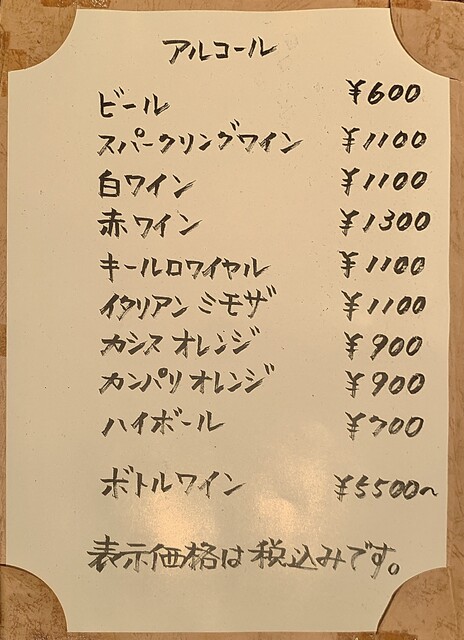 アルコール
ビール ¥600
スパークリングワイン ¥1100
白ワイン ¥1100
赤ワイン ¥1300
キールロワイヤル ¥1100
イタリアンミモザ ¥1100
カシスオレンジ ¥900
カンパリオレンジ ¥900
ハイボール ¥700
ボトルワイン ¥5500~
表示価格は税込みです。